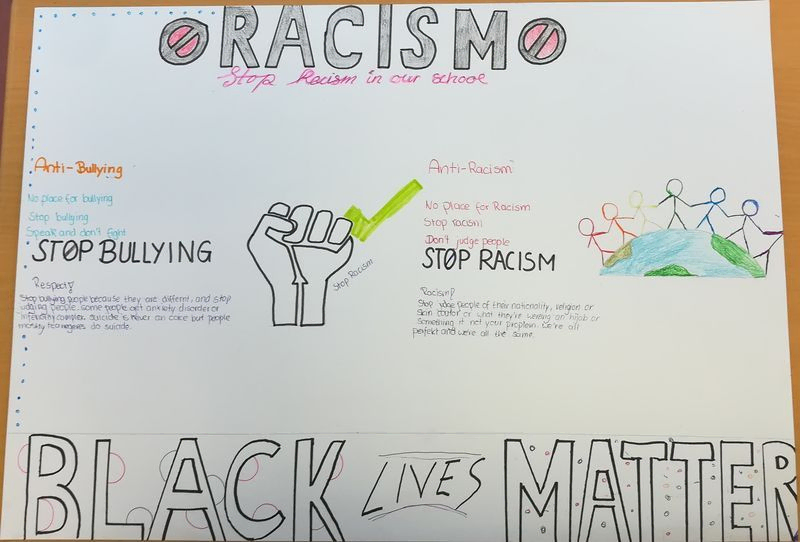 RACISM
Stop Racism in our school
Anti-Bullying
No place for bullying
Stop bullying
Speak and don't fight
STOP BULLYING
Respect!
Stop bullying people because they are differnt, and stop
udging people. some people get anxiety disorder or
inferiority complex. suicide is never an case but people
mostly teenegers do suicide.
Stop Racism
Anti-Racism
No place for Racism
Stop racism
Don't judge people
STOP RACISM
Racism!
Stop judge people of their nationality, religion or
skin coulor or what they're wering an hijab or
something it not your proplem. we're all
perfekt and we're all the same.
BLACK LIVES MATTER